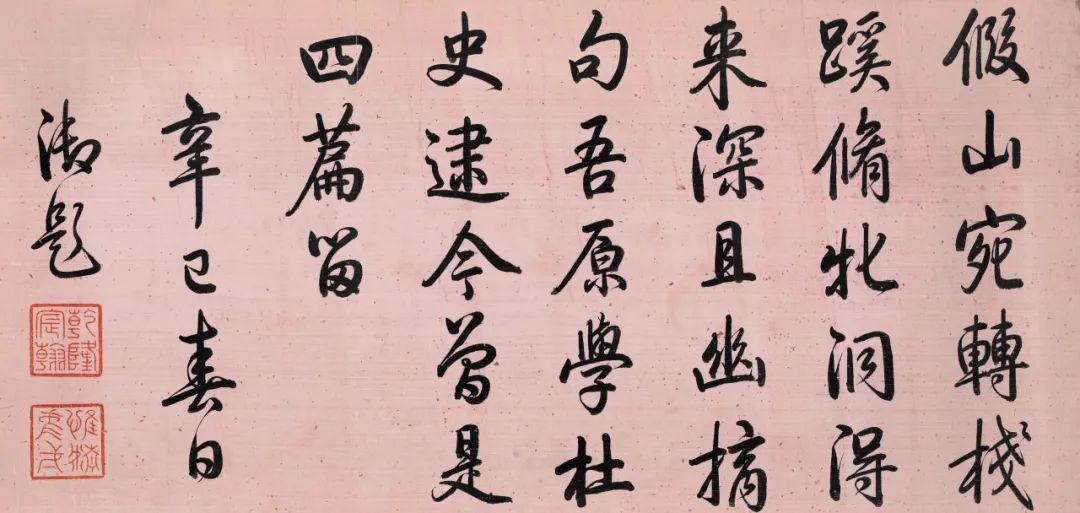 假山宛轉棧
蹊脩牝洞得
来深且幽摘
句吾原學杜
史逮今曾是
四篇留
辛巳春日
御題
乾隆宸翰